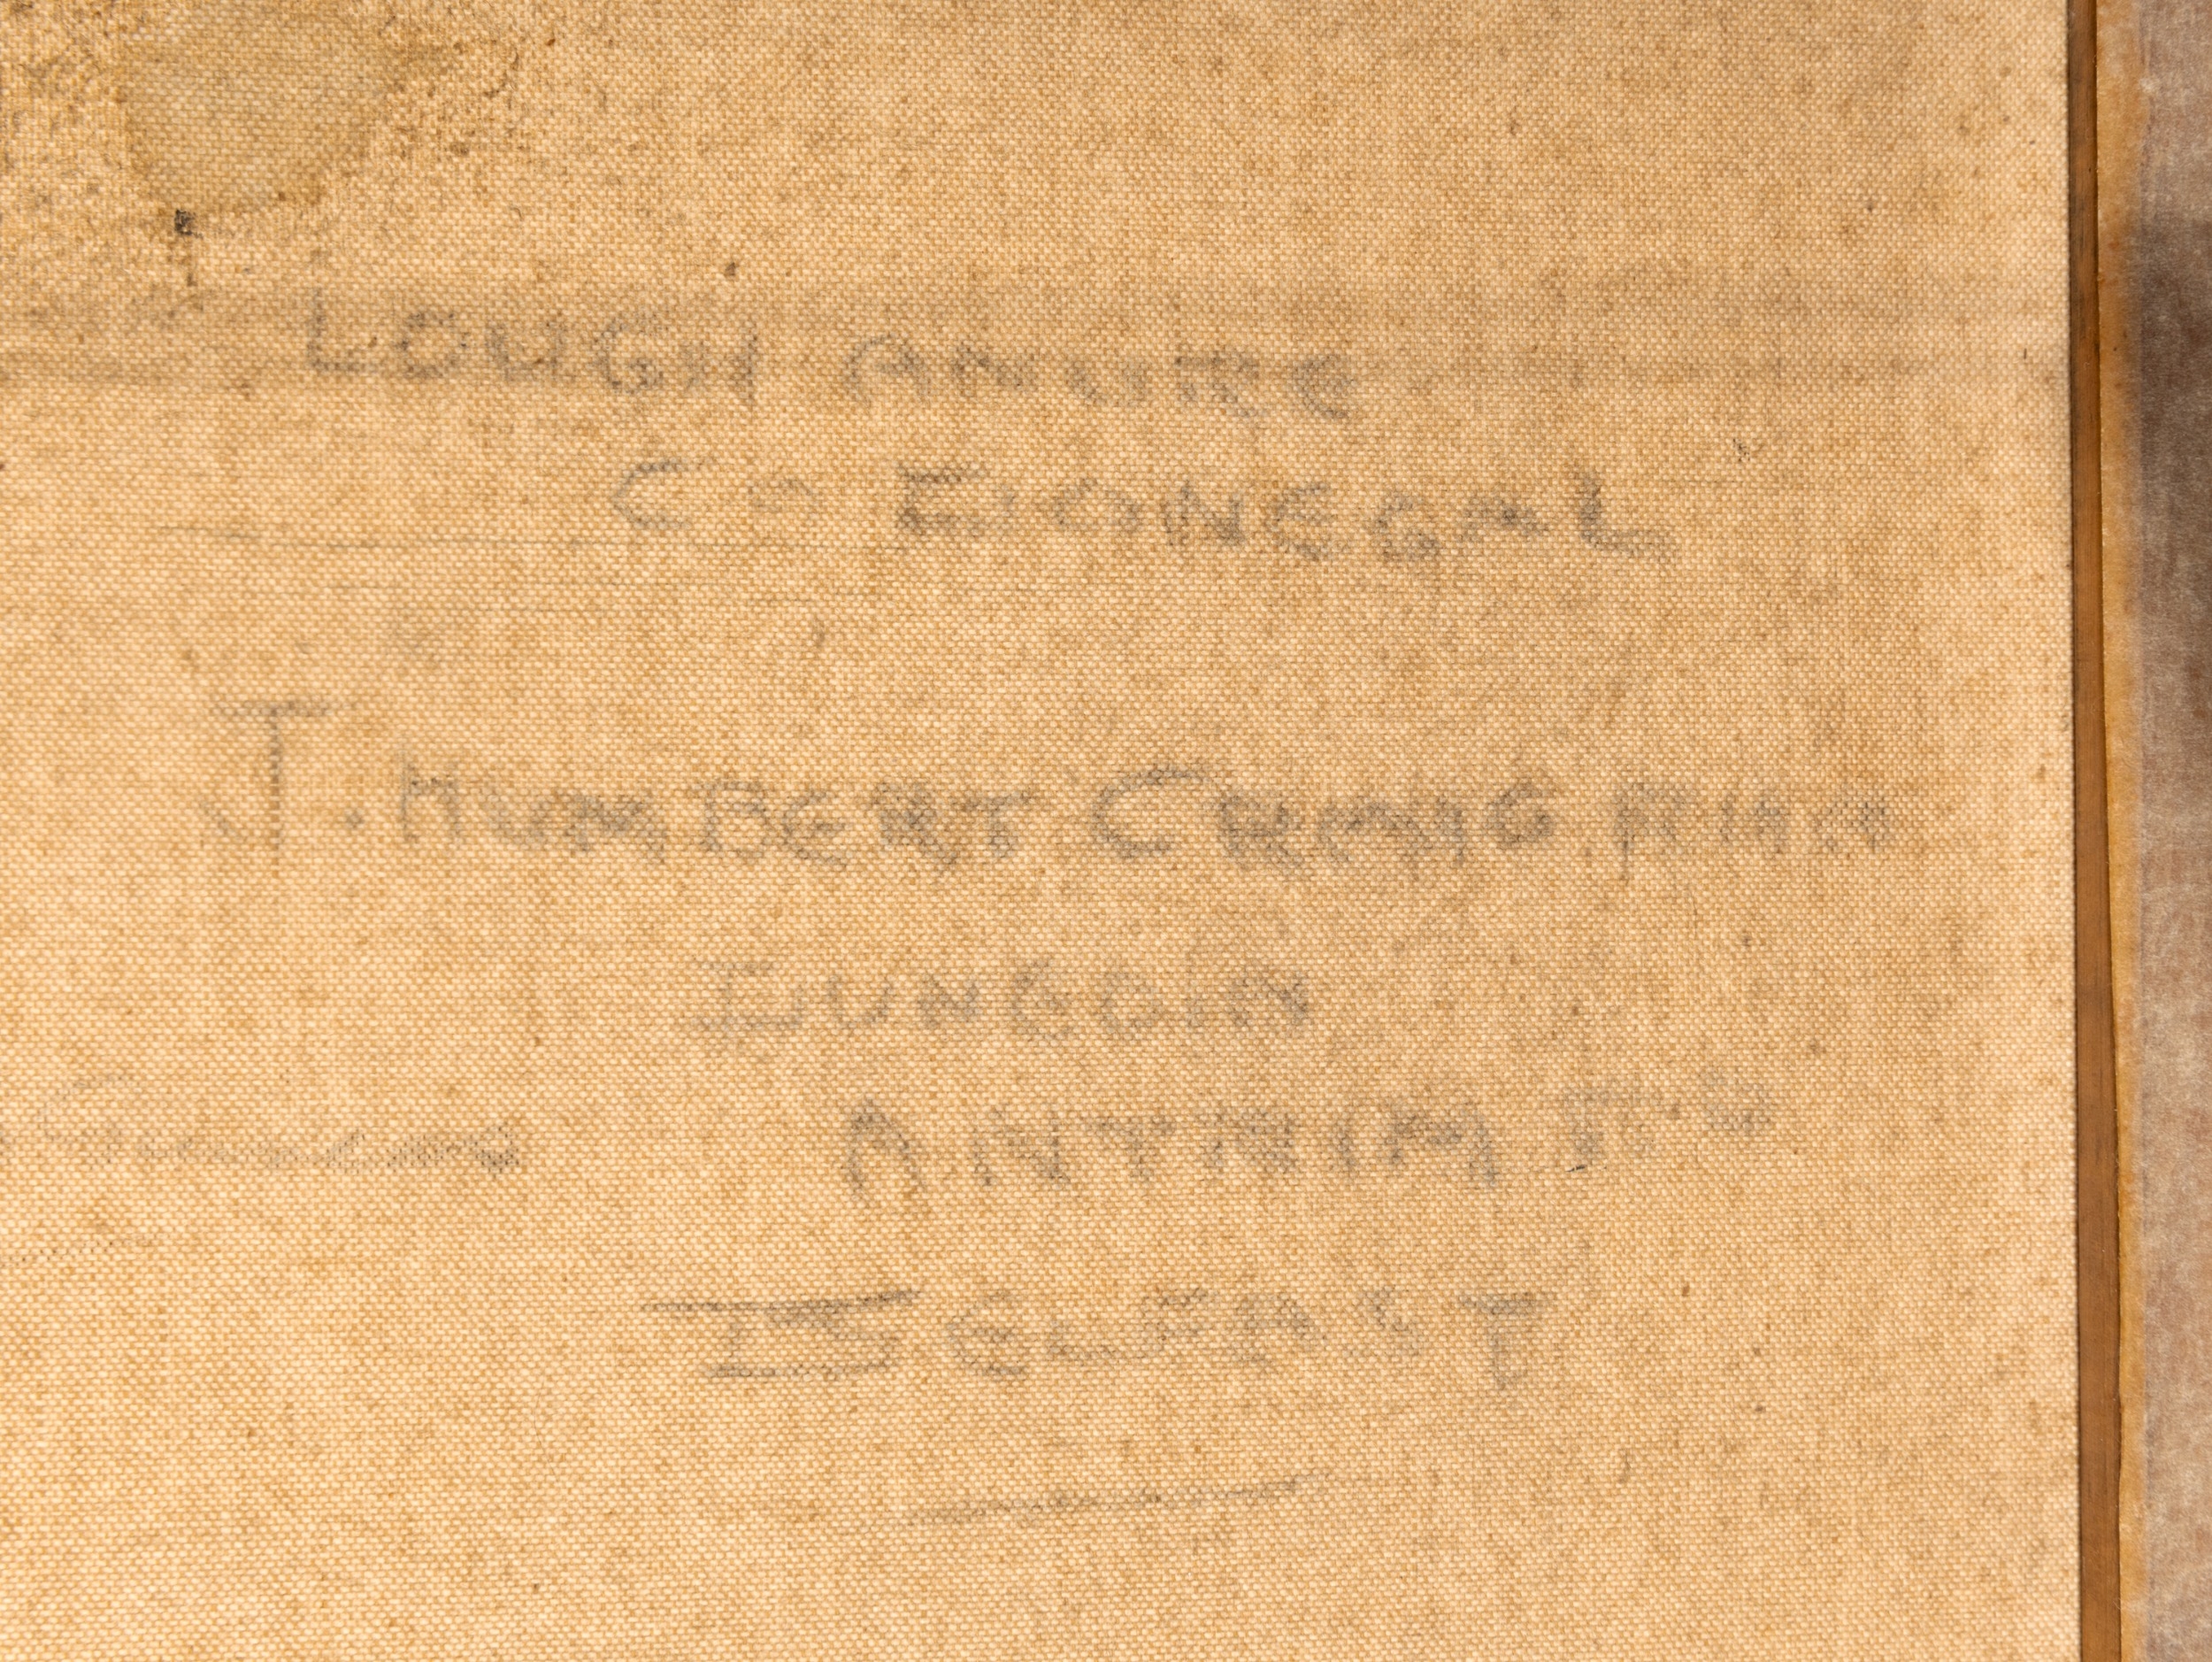 LOUGH ANURE
Co DONEGAL
J. HUMBERT CRAIG
DUNEOIN
ANTRIM RD
BELFAST